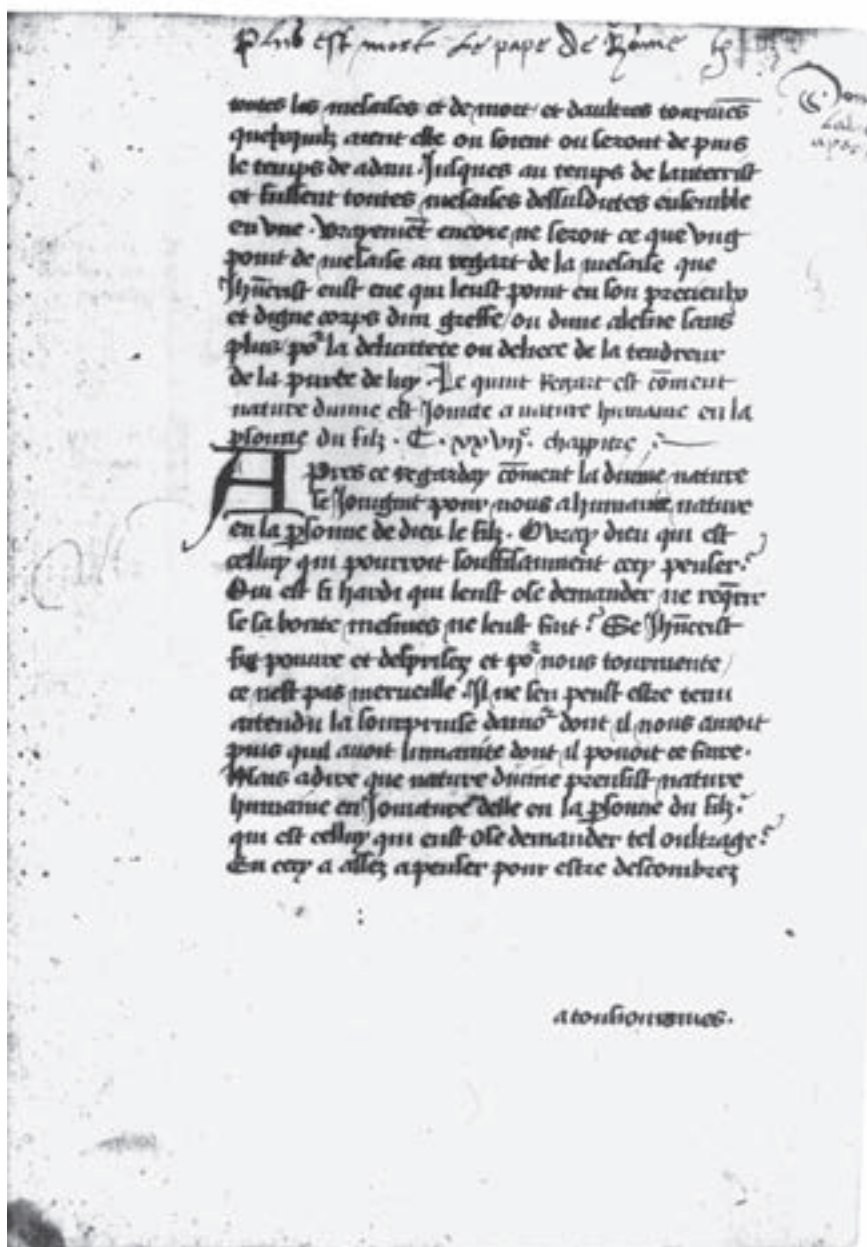 est mort Le pape De Rome
toutes les mesaises et de mort et daultres tourmēs
quelxquilz aient este ou soient ou seront de puis
le temps de adam Jusques au temps de lantecrist
et fussent toutes mesaises dessusdictes ensemble
en vne . vrayemēt encore ne seroit ce que vng
point de mesaise au regart de la mesaise que
Jhūcrist eust eue qui leust point en son precieulx
et digne corps dun greffe / ou dune alesne sans
plus / po2 la delicatece ou de la tendreur
de la purete de luy . Le quint Regart est cōment
nature diuine est Joincte a nature humaine en la
psonne du filz . C . xxvije . chappitre
Apres ce regarday cōment la diuine nature
se Joingnit pour nous a humaine nature
en la psonne de dieu le filz . O vray dieu qui est
celluy qui pourroit souffisamment cecy penser ?
Qui est si hardi qui leust ose demander ne reqrir
se sa bonte mesmes ne leust fait ? Se Jhūcrist
fut pouure et desprisez et po2 nous tourmente /
ce nest pas merueille . Il ne sen peust estre tenu
attendu la sourprinse damo2 dont il nous amoit
puis quil auoit humanite dont il pouoit ce faire .
Mais adire que nature diuine prensist nature
humaine en Joincture delle en la psonne du filz ?
qui est celluy qui eust ose demander tel oultrage ?
En cecy a assez apenser pour estre descombrez
a tousiours mes .